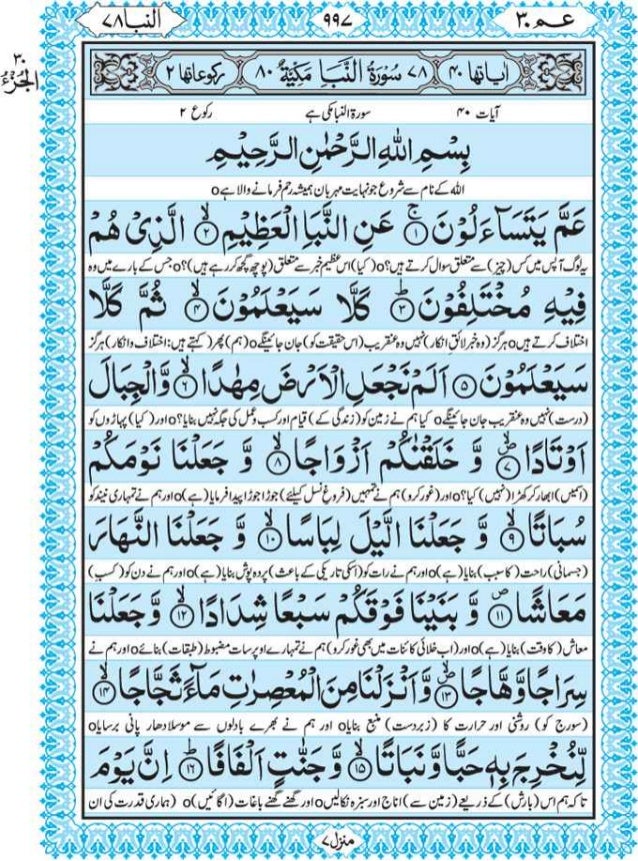 عـم ٣٠
٩٩٧
النبا ٧٨
٣٠
الجزء
اٰیاتھا ٤٠ ٧٨ سُوْرَةُ النَّبَاِ مَكِّيَّةٌ ٨٠ رکوعاتھا ٢
آیات ۴۰ سورۃ النبا مکی ہے رکوع ۲
بِسْمِ اللهِ الرَّحْمٰنِ الرَّحِيْمِ
اللہ کے نام سے شروع جو نہایت مہربان ہمیشہ رحم فرمانے والا ہے o
عَمَّ يَتَسَآءَلُوْنَ ۚ‏﴿۱﴾ عَنِ النَّبَاِ الْعَظِيْمِ ۙ‏﴿۲﴾ الَّذِىْ هُمْ
یہ لوگ آپس میں کس (چیز) سے متعلق سوال کرتے ہیں؟o (کیا) اس عظیم خبر سے متعلق (پوچھ گچھ کر رہے ہیں)؟o جس کے بارے میں وہ
فِيْهِ مُخْتَلِفُوْنَ ؕ‏﴿۳﴾ كَلَّا سَيَعْلَمُوْنَ ۙ‏﴿۴﴾ ثُمَّ كَلَّا
اختلاف کرتے ہیںo ہرگز (وہ خبر لائقِ انکار) نہیں وہ عنقریب (اس حقیقت کو) جان جائینگےo (ہم) پھر (کہتے ہیں: اختلاف و انکار) ہرگز
سَيَعْلَمُوْنَ ‏﴿۵﴾ اَلَمْ نَجْعَلِ الْاَرْضَ مِهٰدًا ۙ‏﴿۶﴾ وَّالْجِبَالَ
(درست) نہیں وہ عنقریب جان جائینگےo کیا ہم نے زمین کو (زندگی کے) قیام اور کسب و عمل کی جگہ نہیں بنایا؟o اور (کیا) پہاڑوں کو
اَوْتَادًا ۪ۙ‏﴿۷﴾ وَّ خَلَقْنٰكُمْ اَزْوَاجًا ۙ‏﴿۸﴾ وَّ جَعَلْنَا نَوْمَكُمْ
(اسمیں) ابھار کر کھڑا (نہیں) کیا؟o اور (غور کرو) ہم نے تمہیں (فروغِ نسل کیلئے) جوڑا جوڑا پیدا فرمایا (ہے)o اور ہم نے تمہاری نیند کو
سُبَاتًا ۙ‏﴿۹﴾ وَّ جَعَلْنَا الَّيْلَ لِبَاسًا ۙ‏﴿۱۰﴾ وَّ جَعَلْنَا النَّهَارَ
(جسمانی) راحت (کا سبب) بنایا (ہے)o اور ہم نے رات کو (اسکی تاریکی کے باعث) پردہ پوش بنایا (ہے)o اور ہم نے دن کو (کسبِ)
مَعَاشًا ۪‏﴿۱۱﴾ وَّ بَنَيْنَا فَوْقَكُمْ سَبْعًا شِدَادًا ۙ‏﴿۱۲﴾ وَّ جَعَلْنَا
معاش (کا وقت) بنایا (ہے)o اور (اب خلائی کائنات میں بھی غور کرو) ہم نے تمہارے اوپر سات مضبوط (طبقات) بنائےo اور ہم نے
سِرَاجًا وَّهَّاجًا ۪ۙ‏﴿۱۳﴾ وَّ اَنْزَلْنَا مِنَ الْمُعْصِرٰتِ مَآءً ثَجَّاجًا ۙ‏﴿۱۴﴾
(سورج کو) روشنی اور حرارت کا (زبردست) منبع بنایاo اور ہم نے بھرے بادلوں سے موسلادھار پانی برسایاo
لِّنُخْرِجَ بِهٖ حَبًّا وَّ نَبَاتًا ۙ‏﴿۱۵﴾ وَّ جَنّٰتٍ اَلْفَافًا ؕ‏﴿۱۶﴾ اِنَّ يَوْمَ
تاکہ ہم اس (بارش) کے ذریعے (زمین سے) اناج اور سبزہ نکالیںo اور گھنے گھنے باغات (اگائیں)o (ہماری قدرت کی ان
منزل ۷